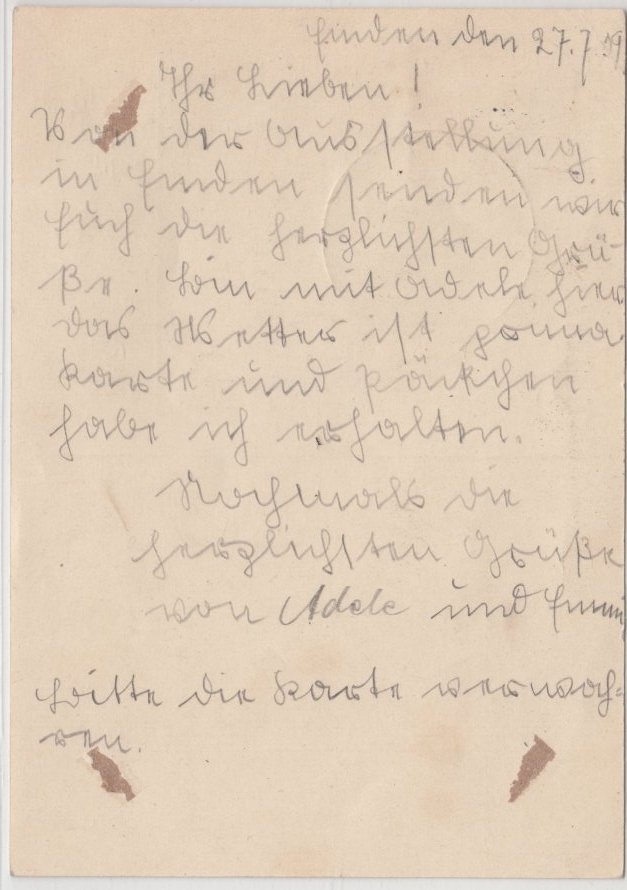 Emden den 27.7.39
Ihr Lieben!
Von der Ausstellung
in Emden senden wir
Euch die herzlichsten Grü-
ße. Bin mit Adele hier
das Wetter ist prima
Karte und Päckchen
habe ich erhalten.
Nochmals die
herzlichsten Grüße
von Adele und Emmi
Bitte die Karte verwah-
ren.